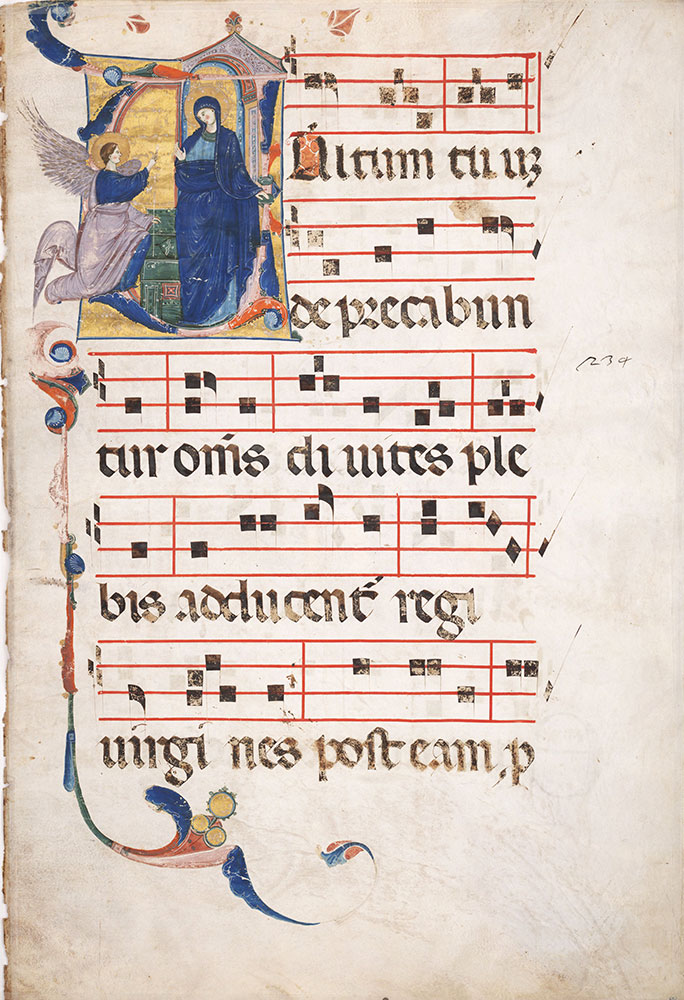 VUltum tuuʒ
de precabun
tur om̄s di uites ple
bis adducent᷑ regi
uirgi nes post eam. p